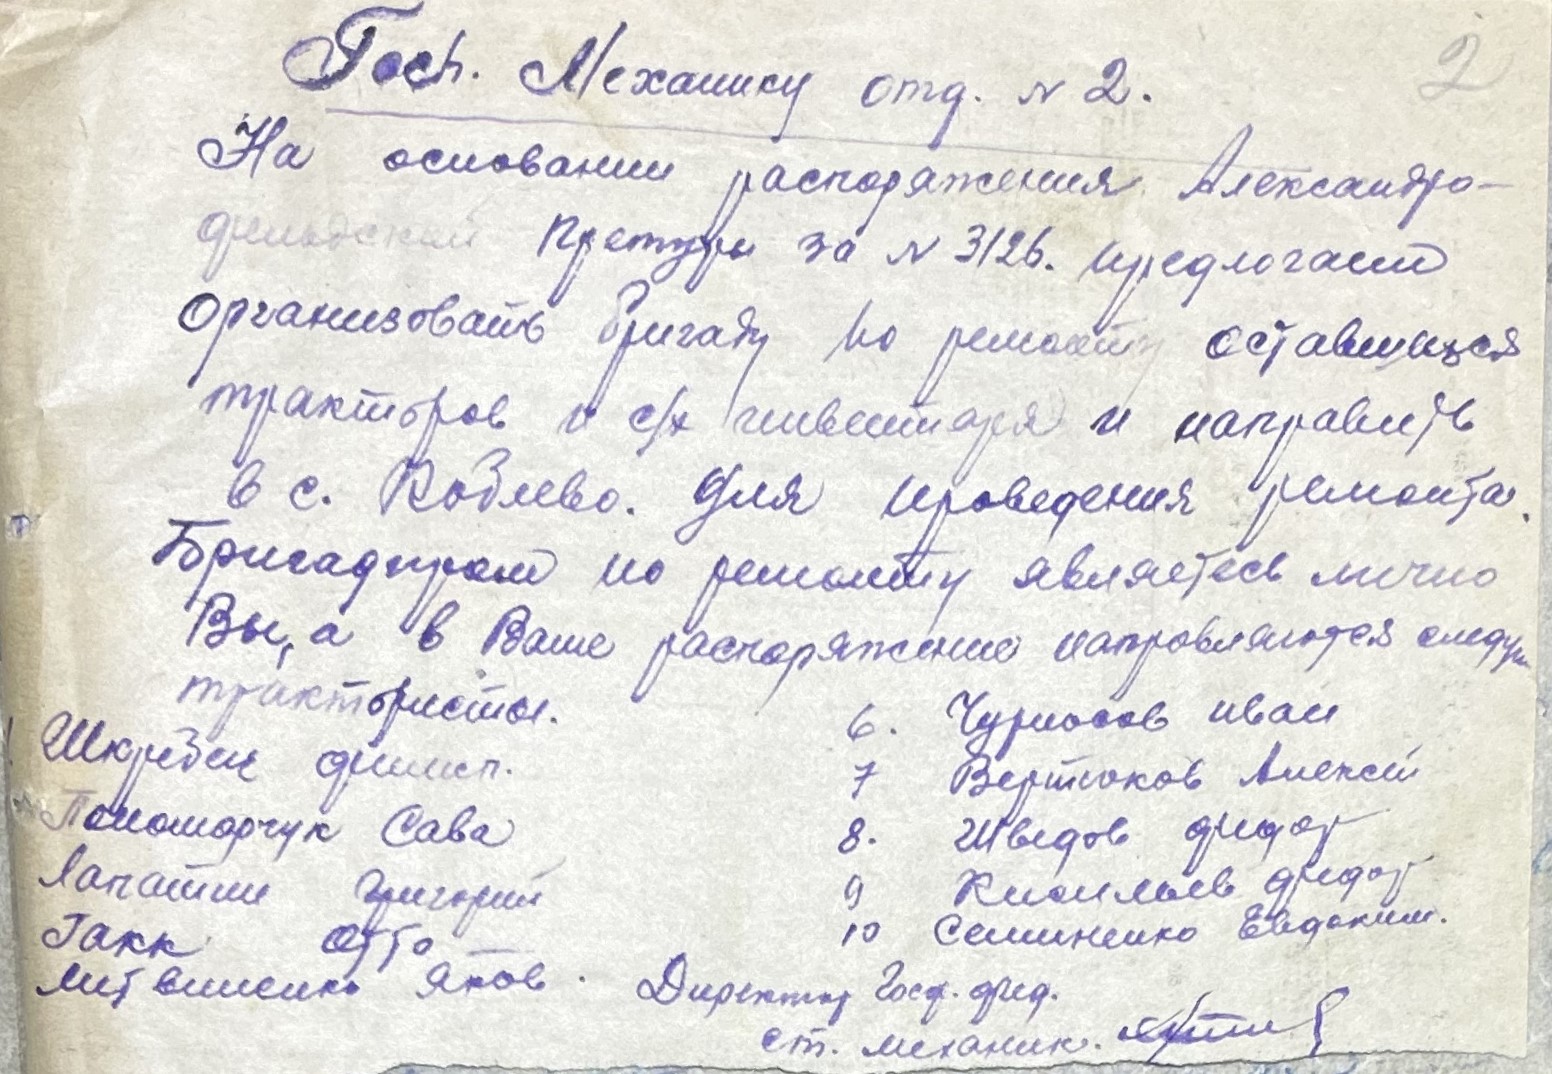 2
Госп. Механику отд. № 2.
На основании распоряжения Александро-
фельдской Претуры за № 3126. предлогаю
Организовать бригаду по ремонту оставшихся
тракторов и с/х инвентаря и направить
в с. Коблево. Для проведения ремонта.
Бригадиром по ремонту являетесь лично
Вы, а в Ваше распоряжение направляются следущ
трактористы.
Шкребен Филип.
Пономарчук Сава
Лапатин Григорий
Гакк Отто
Литвиненко Яков.
6. Чурносов Иван
7 Вертюков Алексей
8. Шведов Федор
9 Кисильов Федор
10 Семиненко Евдоким.
Директор Госф. фед.
ст. механик.